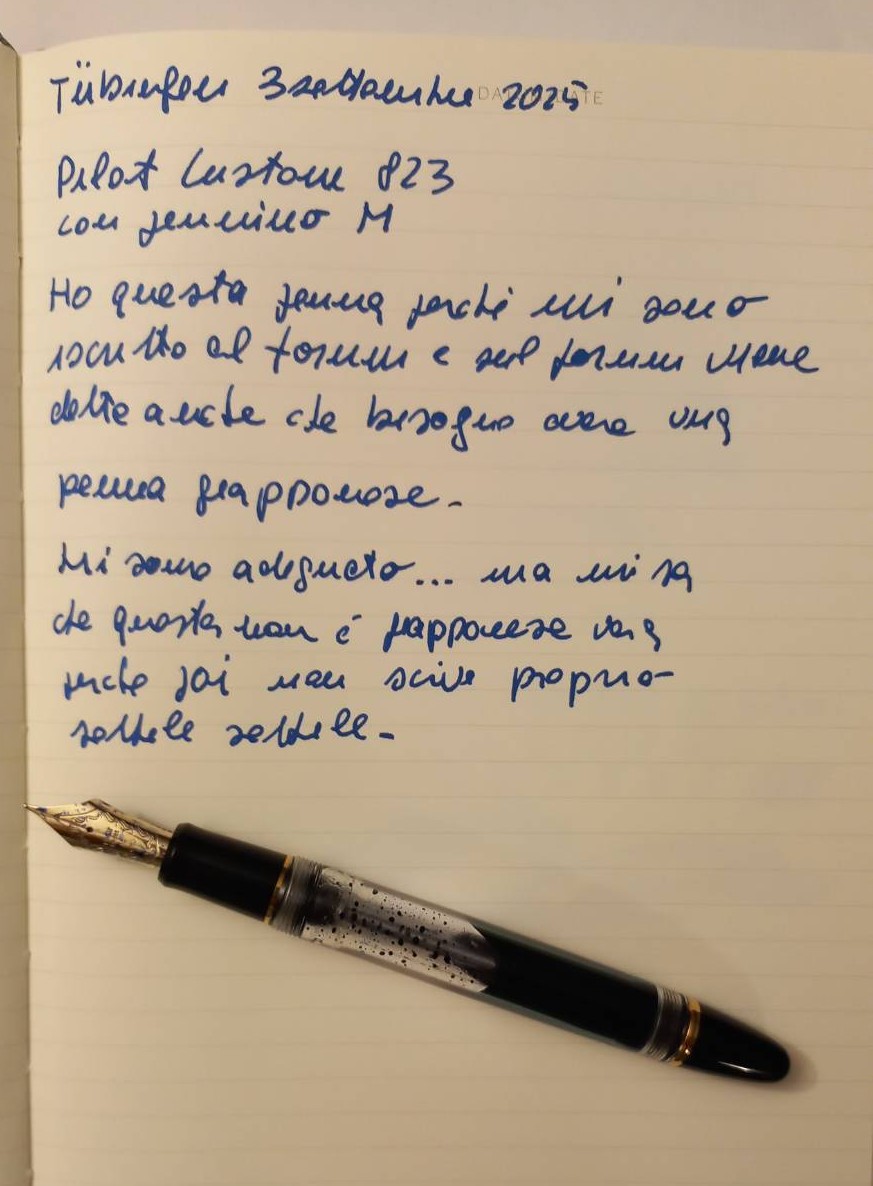 Tübingen 3 settembre 2025
DATE
Pilot Custom 823
con pennino M
Ho questa penna perché mi sono
iscritto al forum e sul forum viene
detto anche che bisogna avere una
penna giapponese.
Mi sono adeguato... ma mi sa
che questa non è giapponese vera
perché poi non scrive proprio
sottile sottile.